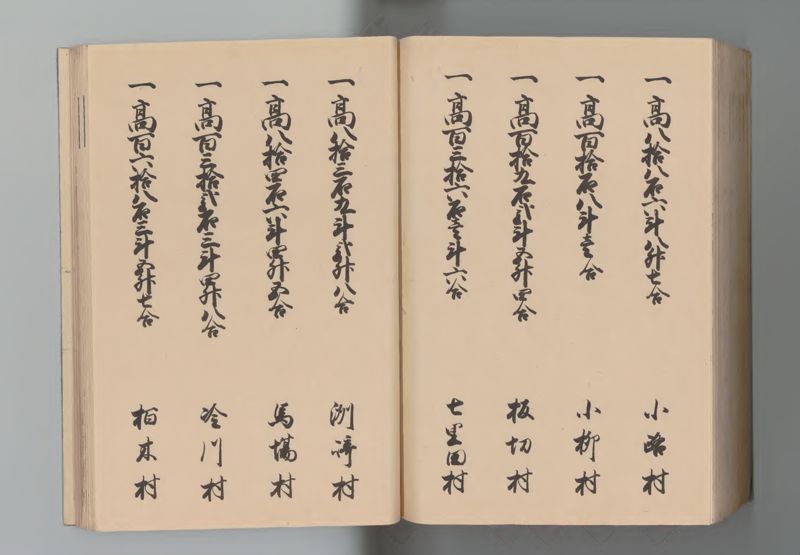 一 高八拾八石六斗八升七合 小路村
一 高百拾石八斗壱合 小柳村
一 高百拾九石弐斗五升四合 板切村
一 高百三拾六石壱斗六合 七里田村
一 高八拾三石九斗弐升八合 渕村
一 高八拾四石六斗四升五合 馬場村
一 高百三拾弐石三斗四升八合 冷川村
一 高百六拾八石三斗五升七合 柏木村